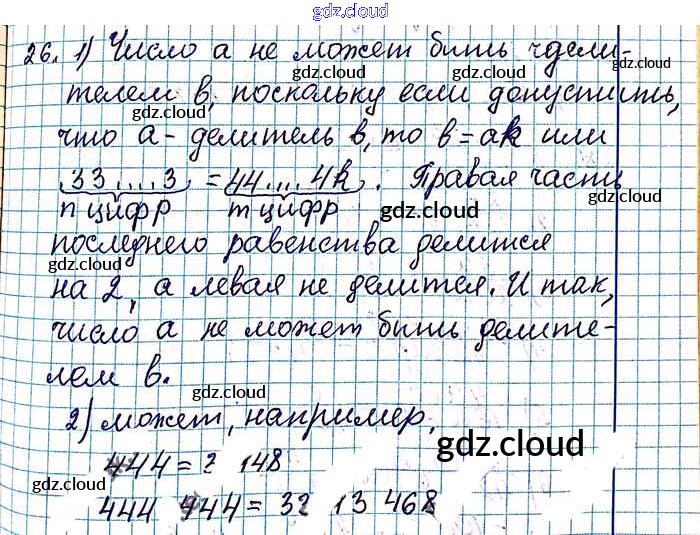 gdz.cloud
26. 1) Число а не может бить чдели-
gdz.cloud
gdz.cloud
телем в, поскольку если допустить,
gdz.cloud
что а - делитель в, то в = ак или
gdz.cloud
33....3 = 44....4k. Правая часть
n цифр m цифр gdz.cloud
gdz.cloud
последнего равенства делится
gdz.cloud
на 2, а левая не делится. И так,
gdz.cloud
число а не может бить делите-
gdz.cloud
лем в.
gdz.cloud
2) может, например,
gdz.cloud
444 = 3 148
gdz.cloud
444 444 = 33 13 468